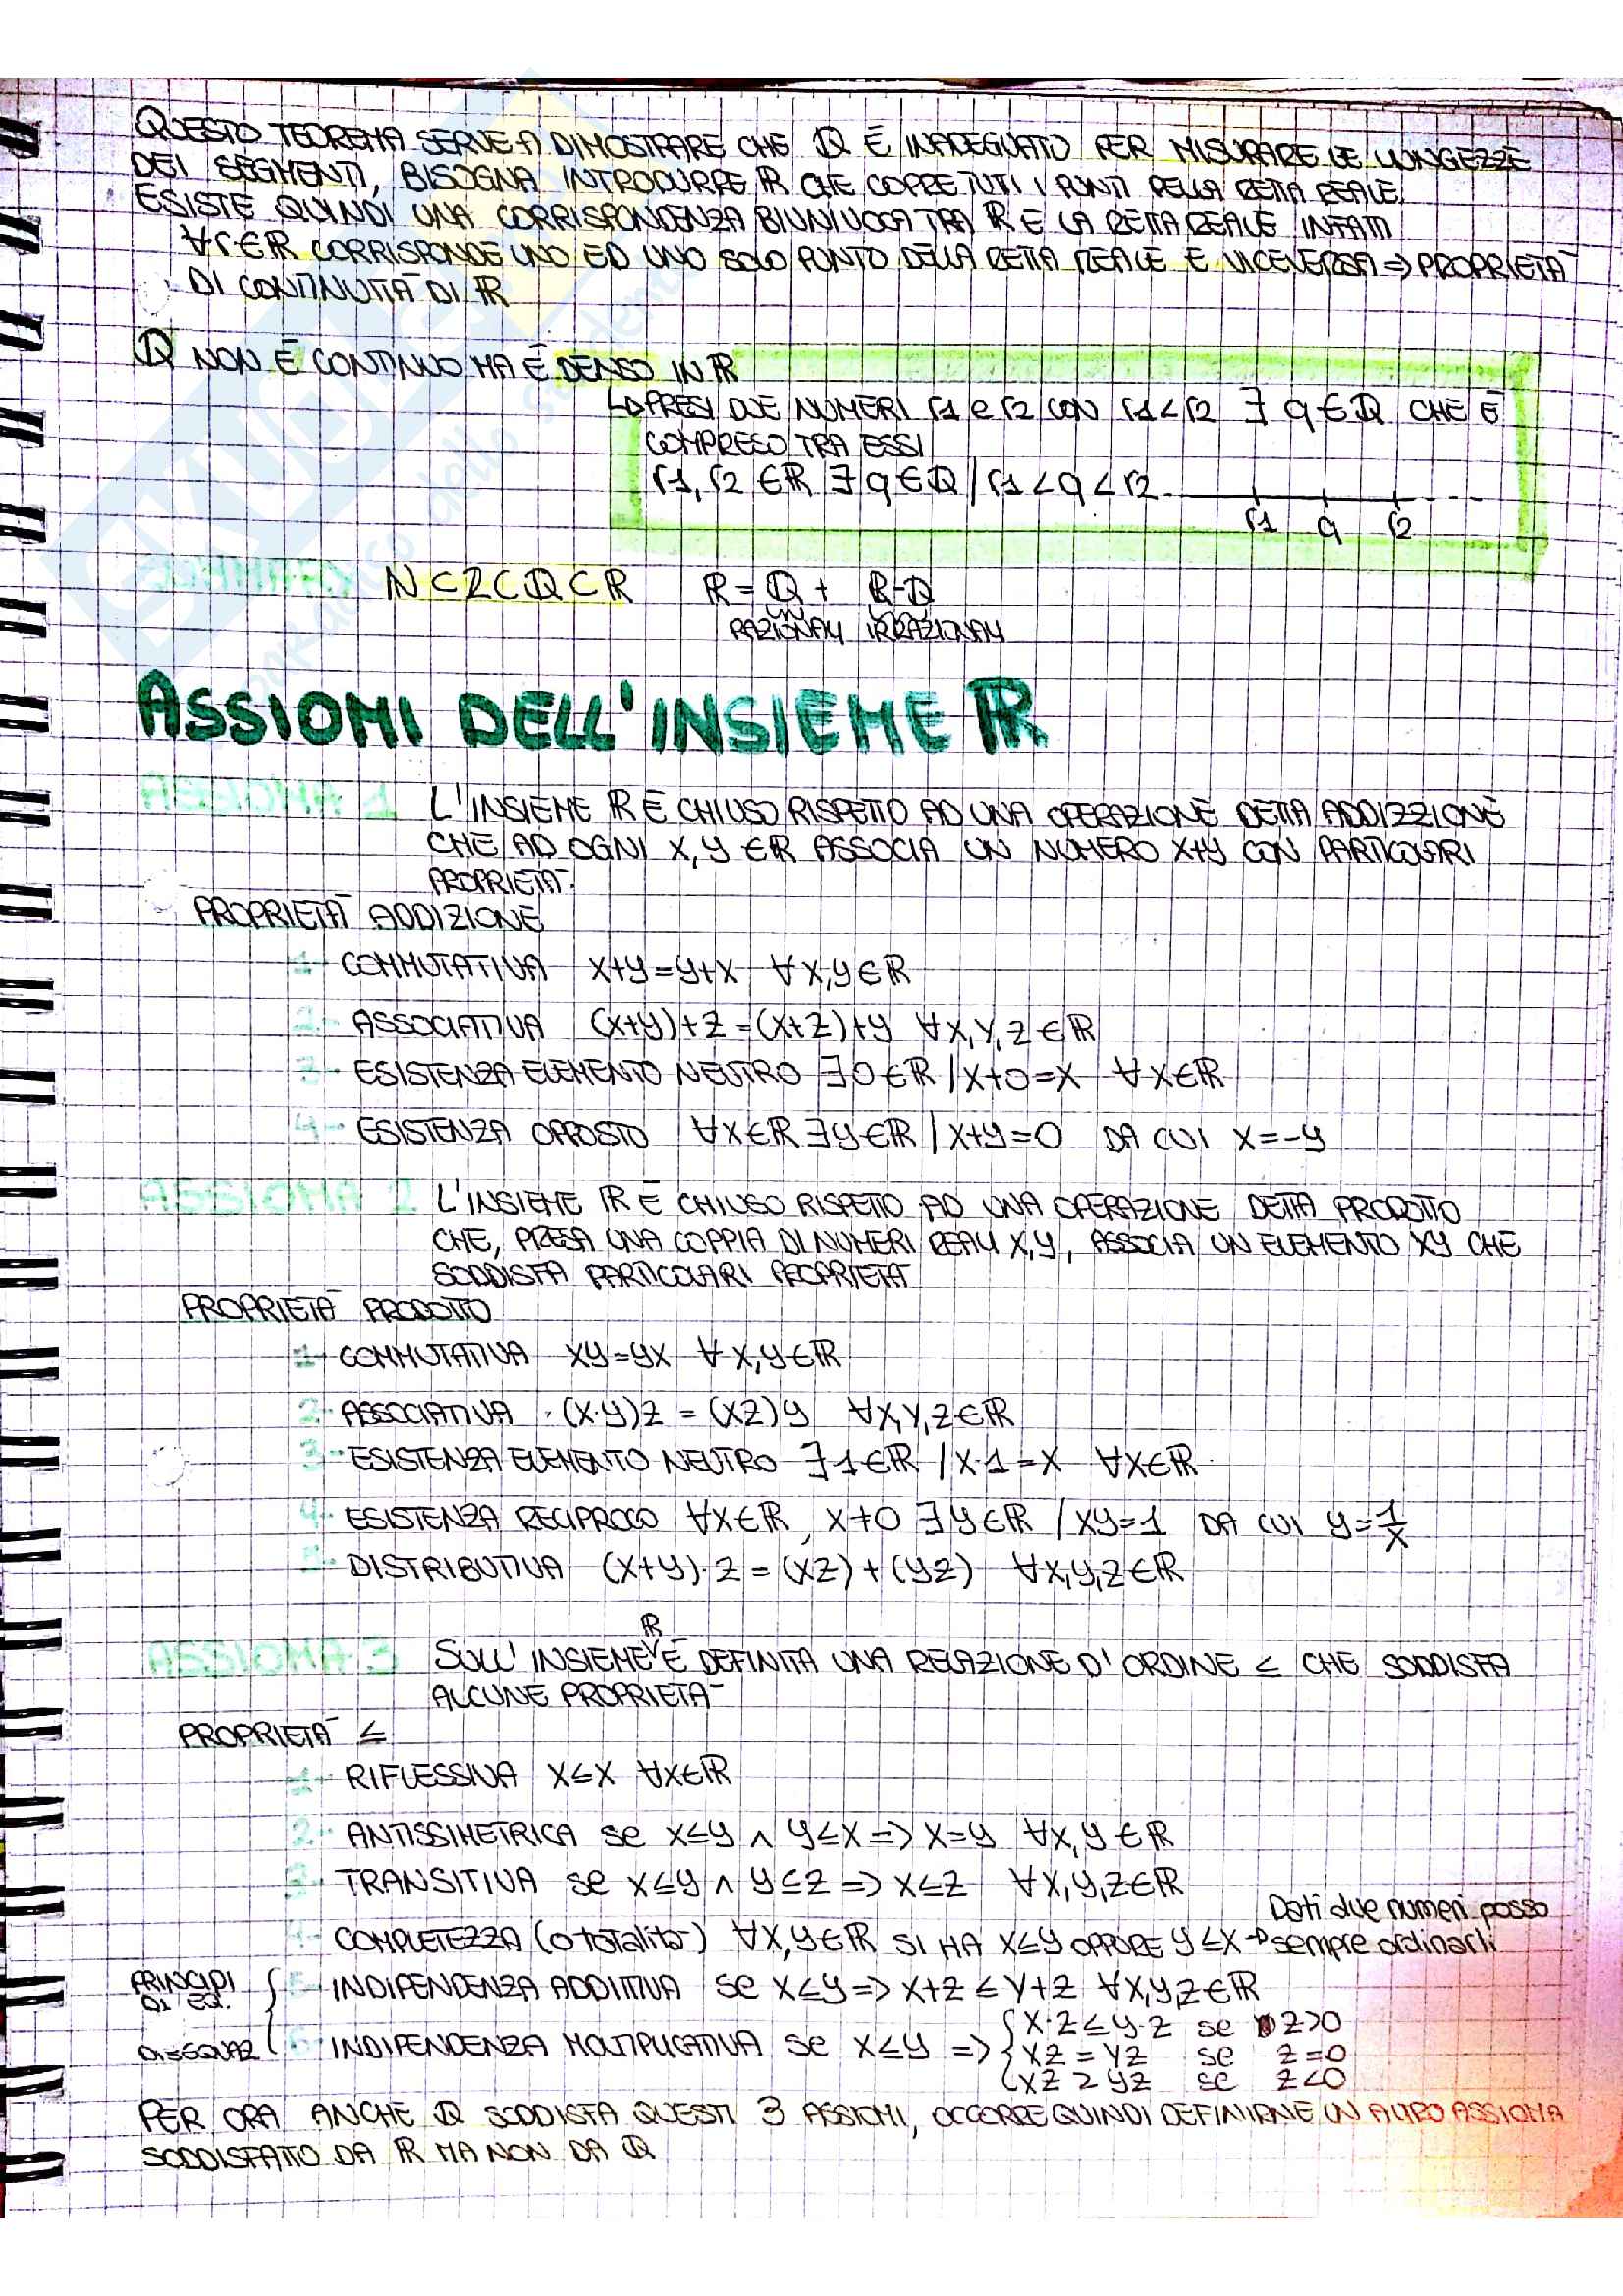 QUESTO TEOREMA SERVE A DIMOSTRARE CHE ℚ È INADEGUATO PER MISURARE LE LUNGEZZE
DEI SEGMENTI, BISOGNA INTRODURRE ℝ CHE COPRE TUTTI I PUNTI DELLA RETTA REALE.
ESISTE QUINDI UNA CORRISPONDENZA BIUNIVOCA TRA ℝ E LA RETTA REALE INFATTI
∀r∈ℝ CORRISPONDE UNO ED UNO SOLO PUNTO DELLA RETTA REALE E VICEVERSA ⇒ PROPRIETÀ
DI CONTINUITÀ DI ℝ
ℚ NON È CONTINUO MA È DENSO IN ℝ
↳ PRESI DUE NUMERI r1 e r2 CON r1<r2 ∃ q∈ℚ CHE È
COMPRESO TRA ESSI
r1, r2 ∈ℝ ∃q∈ℚ / r1<q<r2
r1 q r2
N⊂Z⊂ℚ⊂ℝ ℝ = ℚ + ℝ-ℚ
RAZIONALI IRRAZIONALI
ASSIOMI DELL'INSIEME ℝ
ASSIOMA 1 L'INSIEME ℝ È CHIUSO RISPETTO AD UNA OPERAZIONE DETTA ADDIZZIONE
CHE AD OGNI X,Y ∈ℝ ASSOCIA UN NUMERO X+Y CON PARTICOLARI
PROPRIETÀ.
PROPRIETÀ ADDIZIONE
1- COMMUTATIVA X+Y=Y+X ∀X,Y∈ℝ
2- ASSOCIATIVA (X+Y)+Z=(X+Z)+Y ∀X,Y,Z∈ℝ
3- ESISTENZA ELEMENTO NEUTRO ∃0∈ℝ / X+0=X ∀X∈ℝ
4- ESISTENZA OPPOSTO ∀X∈ℝ ∃Y∈ℝ / X+Y=0 DA CUI X=-Y
ASSIOMA 2 L'INSIEME ℝ È CHIUSO RISPETTO AD UNA OPERAZIONE DETTA PRODOTTO
CHE, PRESA UNA COPPIA DI NUMERI REALI X,Y, ASSOCIA UN ELEMENTO XY CHE
SODDISFA PARTICOLARI PROPRIETÀ
PROPRIETÀ PRODOTTO
1- COMMUTATIVA XY=YX ∀X,Y∈ℝ
2- ASSOCIATIVA (X·Y)Z = (XZ)Y ∀X,Y,Z∈ℝ
3- ESISTENZA ELEMENTO NEUTRO ∃1∈ℝ / X·1=X ∀X∈ℝ
4- ESISTENZA RECIPROCO ∀X∈ℝ, X≠0 ∃Y∈ℝ / XY=1 DA CUI Y=1/X
5- DISTRIBUTIVA (X+Y)·Z=(XZ)+(YZ) ∀X,Y,Z∈ℝ
ASSIOMA 3 SULL'INSIEME ℝ È DEFINITA UNA RELAZIONE D'ORDINE ≤ CHE SODDISFA
ALCUNE PROPRIETÀ
PROPRIETÀ ≤
1- RIFLESSIVA X≤X ∀X∈ℝ
2- ANTISSIMETRICA se X≤Y ∧ Y≤X => X=Y ∀X,Y∈ℝ
3- TRANSITIVA se X≤Y ∧ Y≤Z => X≤Z ∀X,Y,Z∈ℝ
4- COMPLETEZZA (o totalità) ∀X,Y∈ℝ SI HA X≤Y OPPURE Y≤X → Dati due numeri posso sempre ordinarli
PRINCIPI DI EQ. 5- INDIPENDENZA ADDITIVA se X≤Y => X+Z≤Y+Z ∀X,Y,Z∈ℝ
DISEQUAZ 6- INDIPENDENZA MOLTIPLICATIVA se X≤Y => { X·Z≤Y·Z se Z>0
XZ=YZ se Z=0
XZ≥YZ se Z<0
PER ORA ANCHE ℚ SODDISFA QUESTI 3 ASSIOMI, OCCORRE QUINDI DEFINIRNE UN ALTRO ASSIOMA
SODDISFATTO DA ℝ MA NON DA ℚ